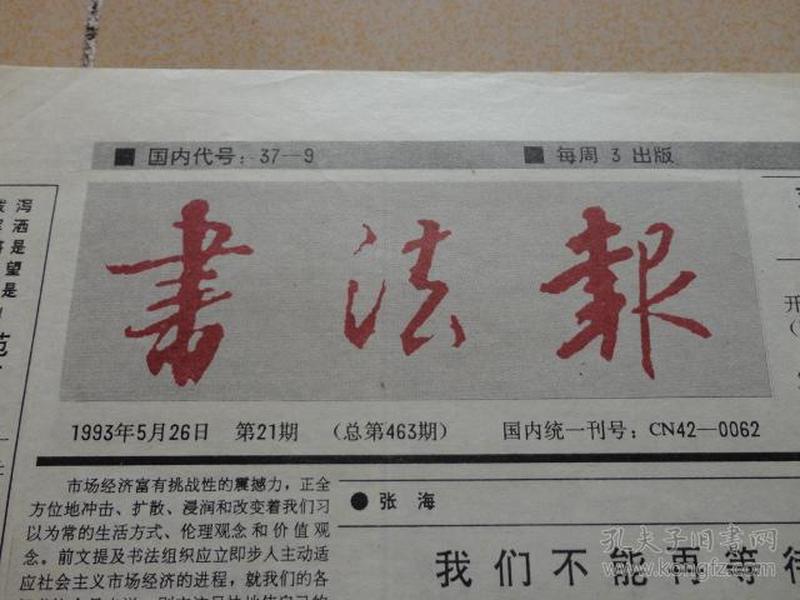 ■ 国内代号：37—9
■ 每周 3 出版
書法報
1993年5月26日 第21期 （总第463期） 国内统一刊号：CN42—0062
泻
洒
是
望
是
范
市场经济富有挑战性的震撼力，正全
方位地冲击、扩散、浸润和改变着我们习
以为常的生活方式、伦理观念和价值观
念。前文提及书法组织应立即步入主动适
应社会主义市场经济的进程，就我们的各
● 张 海
我们不能再等待
开
（
孔夫子旧书网
www.kongfz.com